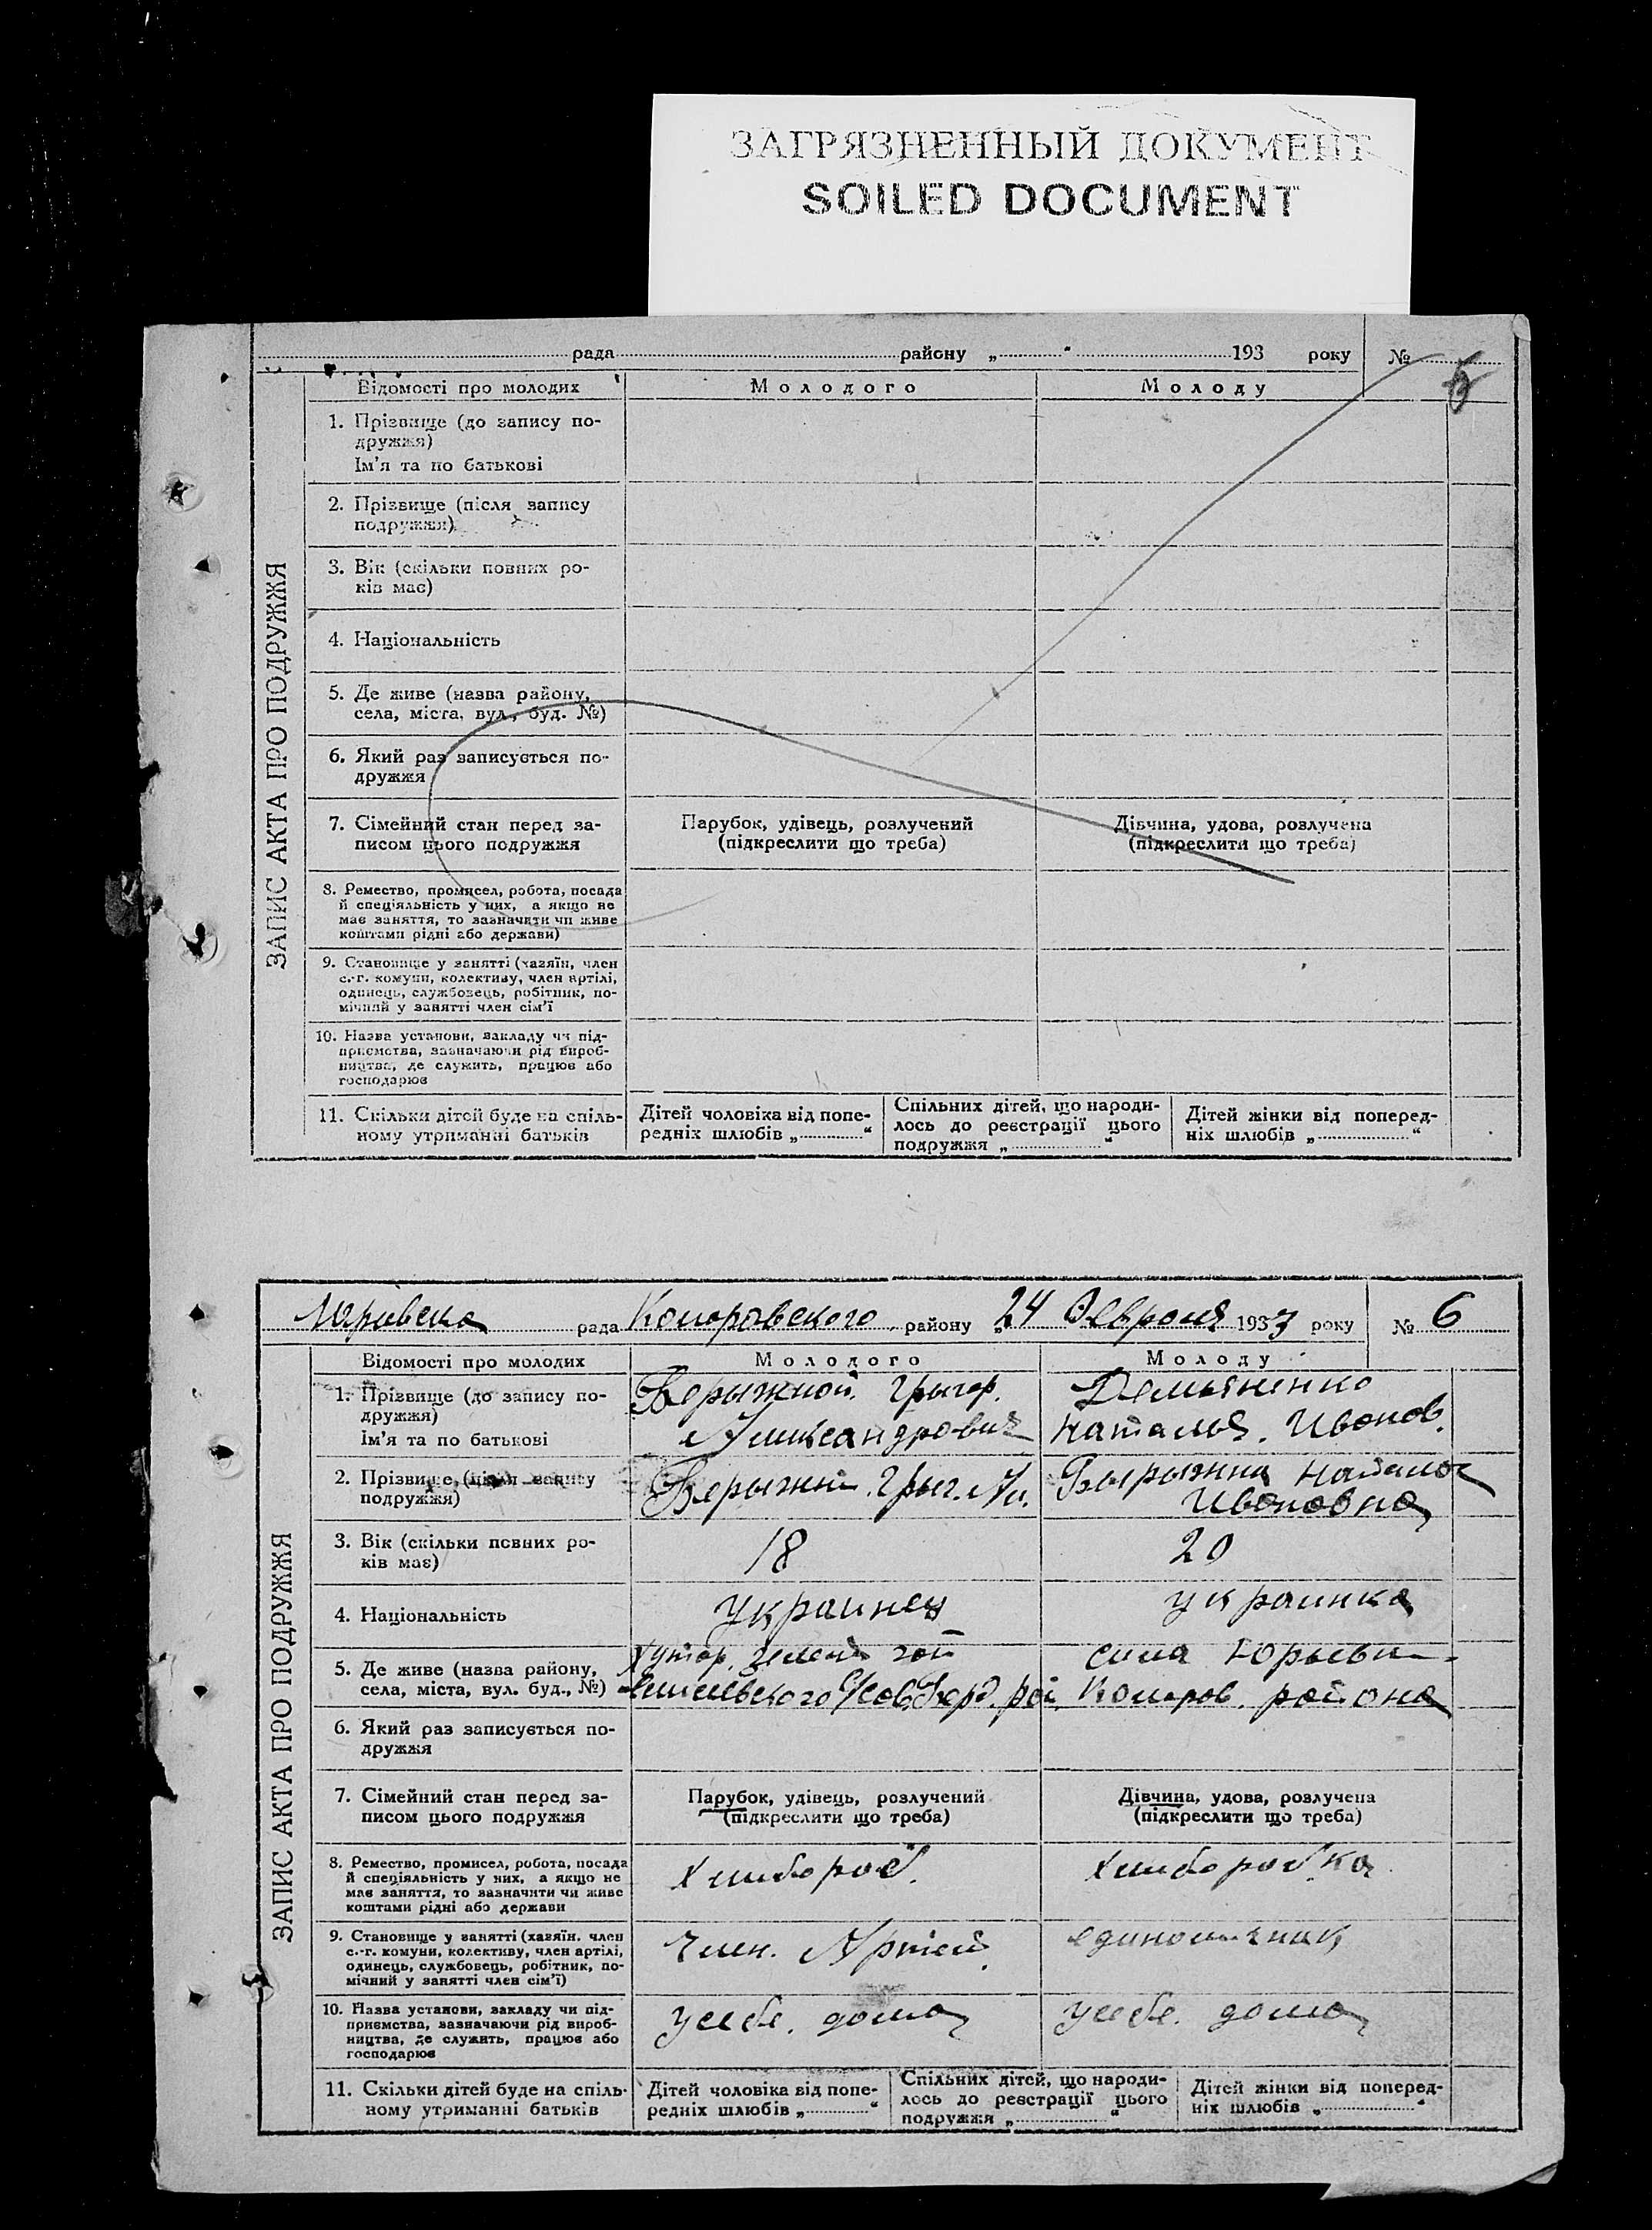 ЗАГРЯЗНЕННЫЙ ДОКУМЕНТ
SOILED DOCUMENT
рада района „ “ 193 року №
5
ЗАПИС АКТА ПРО ПОДРУЖЖЯ
Відомості про молодих
Молодого
Молоду
1. Прізвище (до запису по-
дружжя)
Ім'я та по батькові
2. Прізвище (після запису
подружжя)
3. Вік (скільки повних ро-
ків має)
4. Національність
5. Де живе (назва району,
села, міста, вул., буд. №)
6. Який раз записується по-
дружжя
7. Сімейний стан перед за-
писом цього подружжя
Парубок, удівець, розлучений
(підкреслити що треба)
Дівчина, удова, розлучена
(підкреслити що треба)
8. Ремество, промисел, робота, посада
й спеціяльність у них, а якщо не
має заняття, то зазначити чи живе
коштами рідні або держави)
9. Становище у занятті (хазяїн, член
с.-г. комуни, колективу, член артілі,
одинець, службовець, робітник, по-
мічний у занятті член сім'ї
10. Назва установи, закладу чи під-
приємства, зазначаючи рід вироб-
ництва, де служить, працює або
господарює
11. Скільки дітей буде на спіль-
ному утриманні батьків
Дітей чоловіка від попе-
редніх шлюбів „ “
Спільних дітей, що народи-
лось до реєстрації цього
подружжя „ “
Дітей жінки від поперед-
ніх шлюбів „ “
рада Комаровского району „24 Февроля 1933 року № 6
ЗАПИС АКТА ПРО ПОДРУЖЖЯ
Відомості про молодих
Молодого
Молоду
1. Прізвище (до запису по-
дружжя)
Ім'я та по батькові
Берыжной Грыгор.
Александрович
Демьяненко
Наталья. Ивонов.
2. Прізвище (після запису
подружжя)
Грыг. Ал.
Ивоновна
3. Вік (скільки повних ро-
ків має)
18
20
4. Національність
Украинец
украинка
5. Де живе (назва району,
села, міста, вул. буд., №)
Хутор.
села
Комаров. района
6. Який раз записується по-
дружжя
7. Сімейний стан перед за-
писом цього подружжя
Парубок, удівець, розлучений
(підкреслити що треба)
Дівчина, удова, розлучена
(підкреслити що треба)
8. Ремество, промисел, робота, посада
й спеціяльність у них, а якщо не
має заняття, то зазначити чи живе
коштами рідні або держави
Хлибороб.
Хлиборобка
9. Становище у занятті (хазяїн, член
с.-г. комуни, колективу, член артілі,
одинець, службовець, робітник, по-
мічний у занятті член сім'ї)
Член. Артели
единоличник
10. Назва установи, закладу чи під-
приємства, зазначаючи рід вироб-
ництва, де служить, працює або
господарює
Усебе. дома
Усебе. дома
11. Скільки дітей буде на спіль-
ному утриманні батьків
Дітей чоловіка від попе-
редніх шлюбів „ “
Спільних дітей, що народи-
лось до реєстрації цього
подружжя „ “
Дітей жінки від поперед-
ніх шлюбів „ “